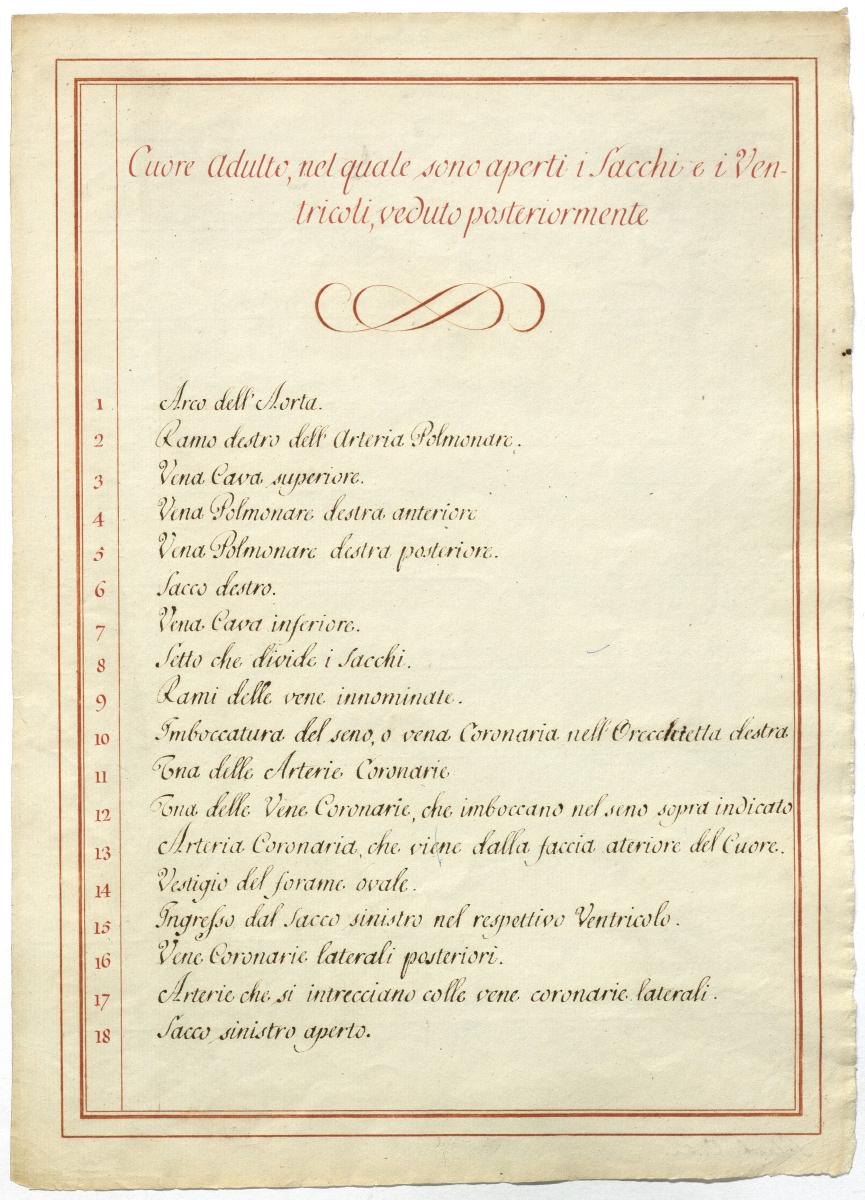 Cuore Adulto, nel quale sono aperti i Sacchi e i Ven-
tricoli, veduto posteriormente
1 Arco dell'Aorta.
2 Ramo destro dell'Arteria Polmonare.
3 Vena Cava superiore.
4 Vena Polmonare destra anteriore
5 Vena Polmonare destra posteriore.
6 Sacco destro.
7 Vena Cava inferiore.
8 Setto che divide i Sacchi.
9 Rami delle vene innominate.
10 Imboccatura del seno, o vena Coronaria nell'Orecchietta destra
11 Una delle Arterie Coronarie
12 Una delle Vene Coronarie, che imboccano nel seno sopra indicato
13 Arteria Coronaria, che viene dalla faccia ateriore del Cuore.
14 Vestigio del forame ovale.
15 Ingresso dal Sacco sinistro nel respettivo Ventricolo.
16 Vene Coronarie laterali posteriori.
17 Arterie che si intrecciano colle vene coronarie laterali.
18 Sacco sinistro aperto.